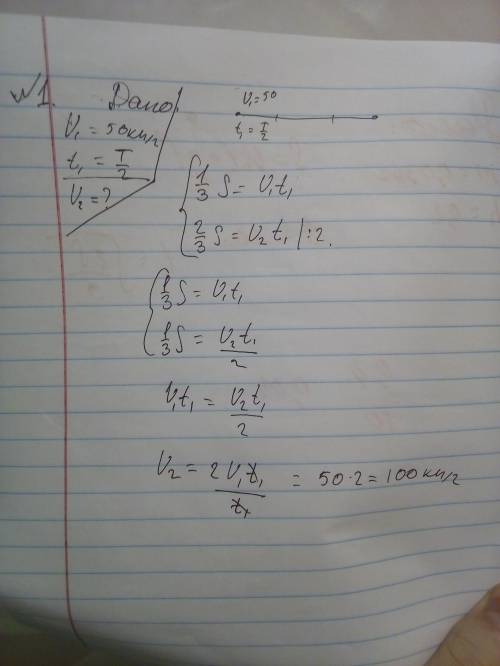 №1. Дано
V₁ = 50км/ч
t₁ = T/2
V₂ = ?
V₁ = 50
t₁ = T/2
1/3 S = V₁t₁
2/3 S = V₂t₁ |:2.
1/3 S = V₁t₁
1/3 S = V₂t₁/2
V₁t₁ = V₂t₁/2
V₂ = 2V₁t₁/t₁ = 50·2 = 100км/ч